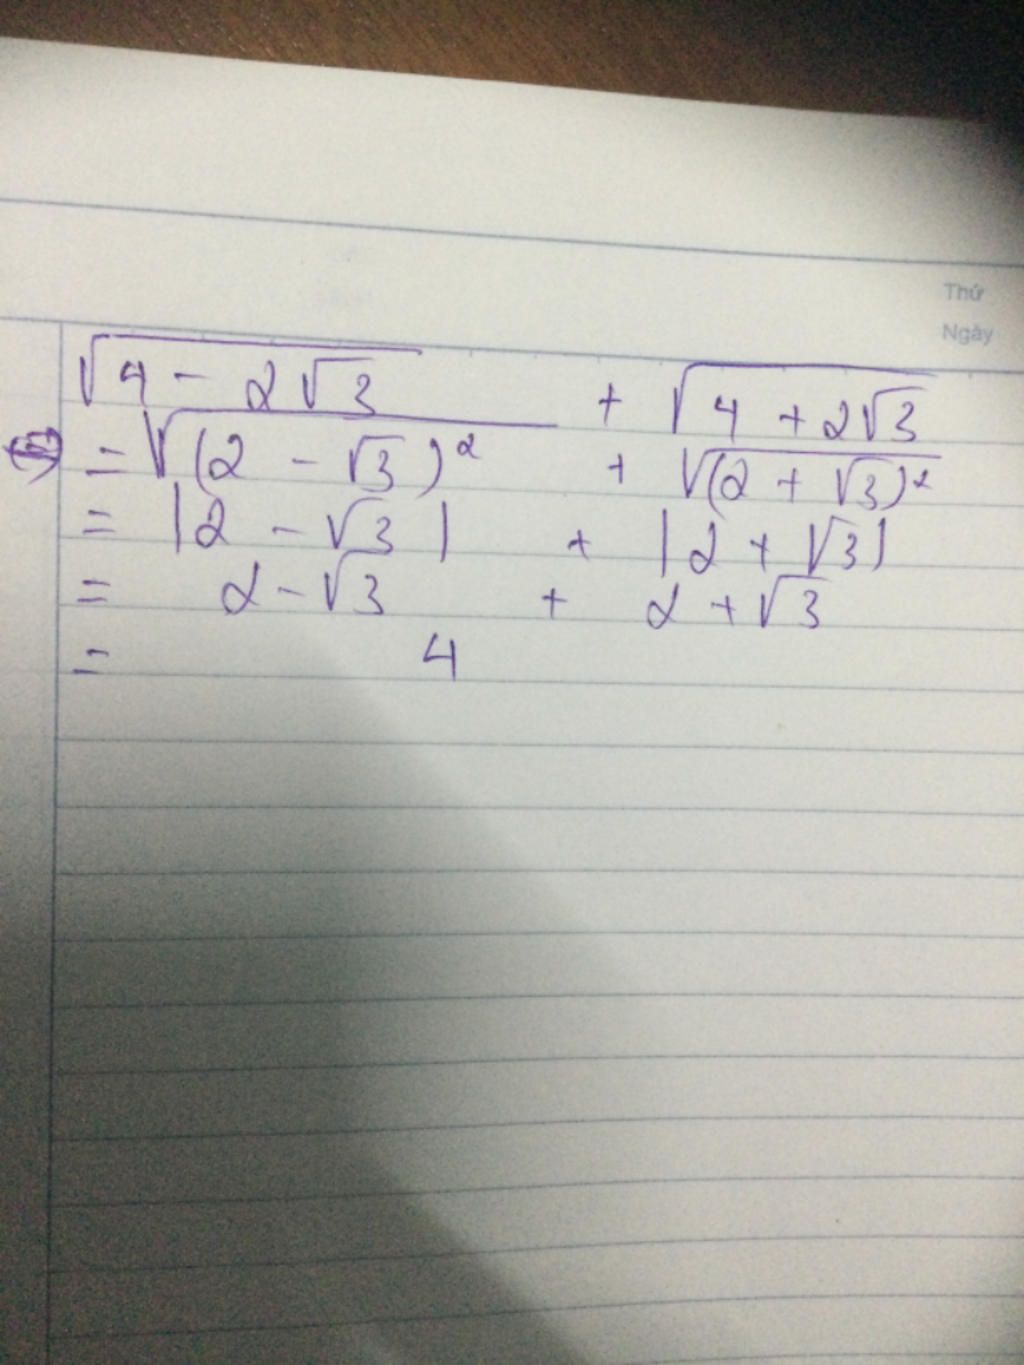 Thứ
Ngày
√(4 - 2√3) + √(4 + 2√3)
= √((2 - √3)²) + √((2 + √3)²)
= |2 - √3| + |2 + √3|
= 2 - √3 + 2 + √3
= 4